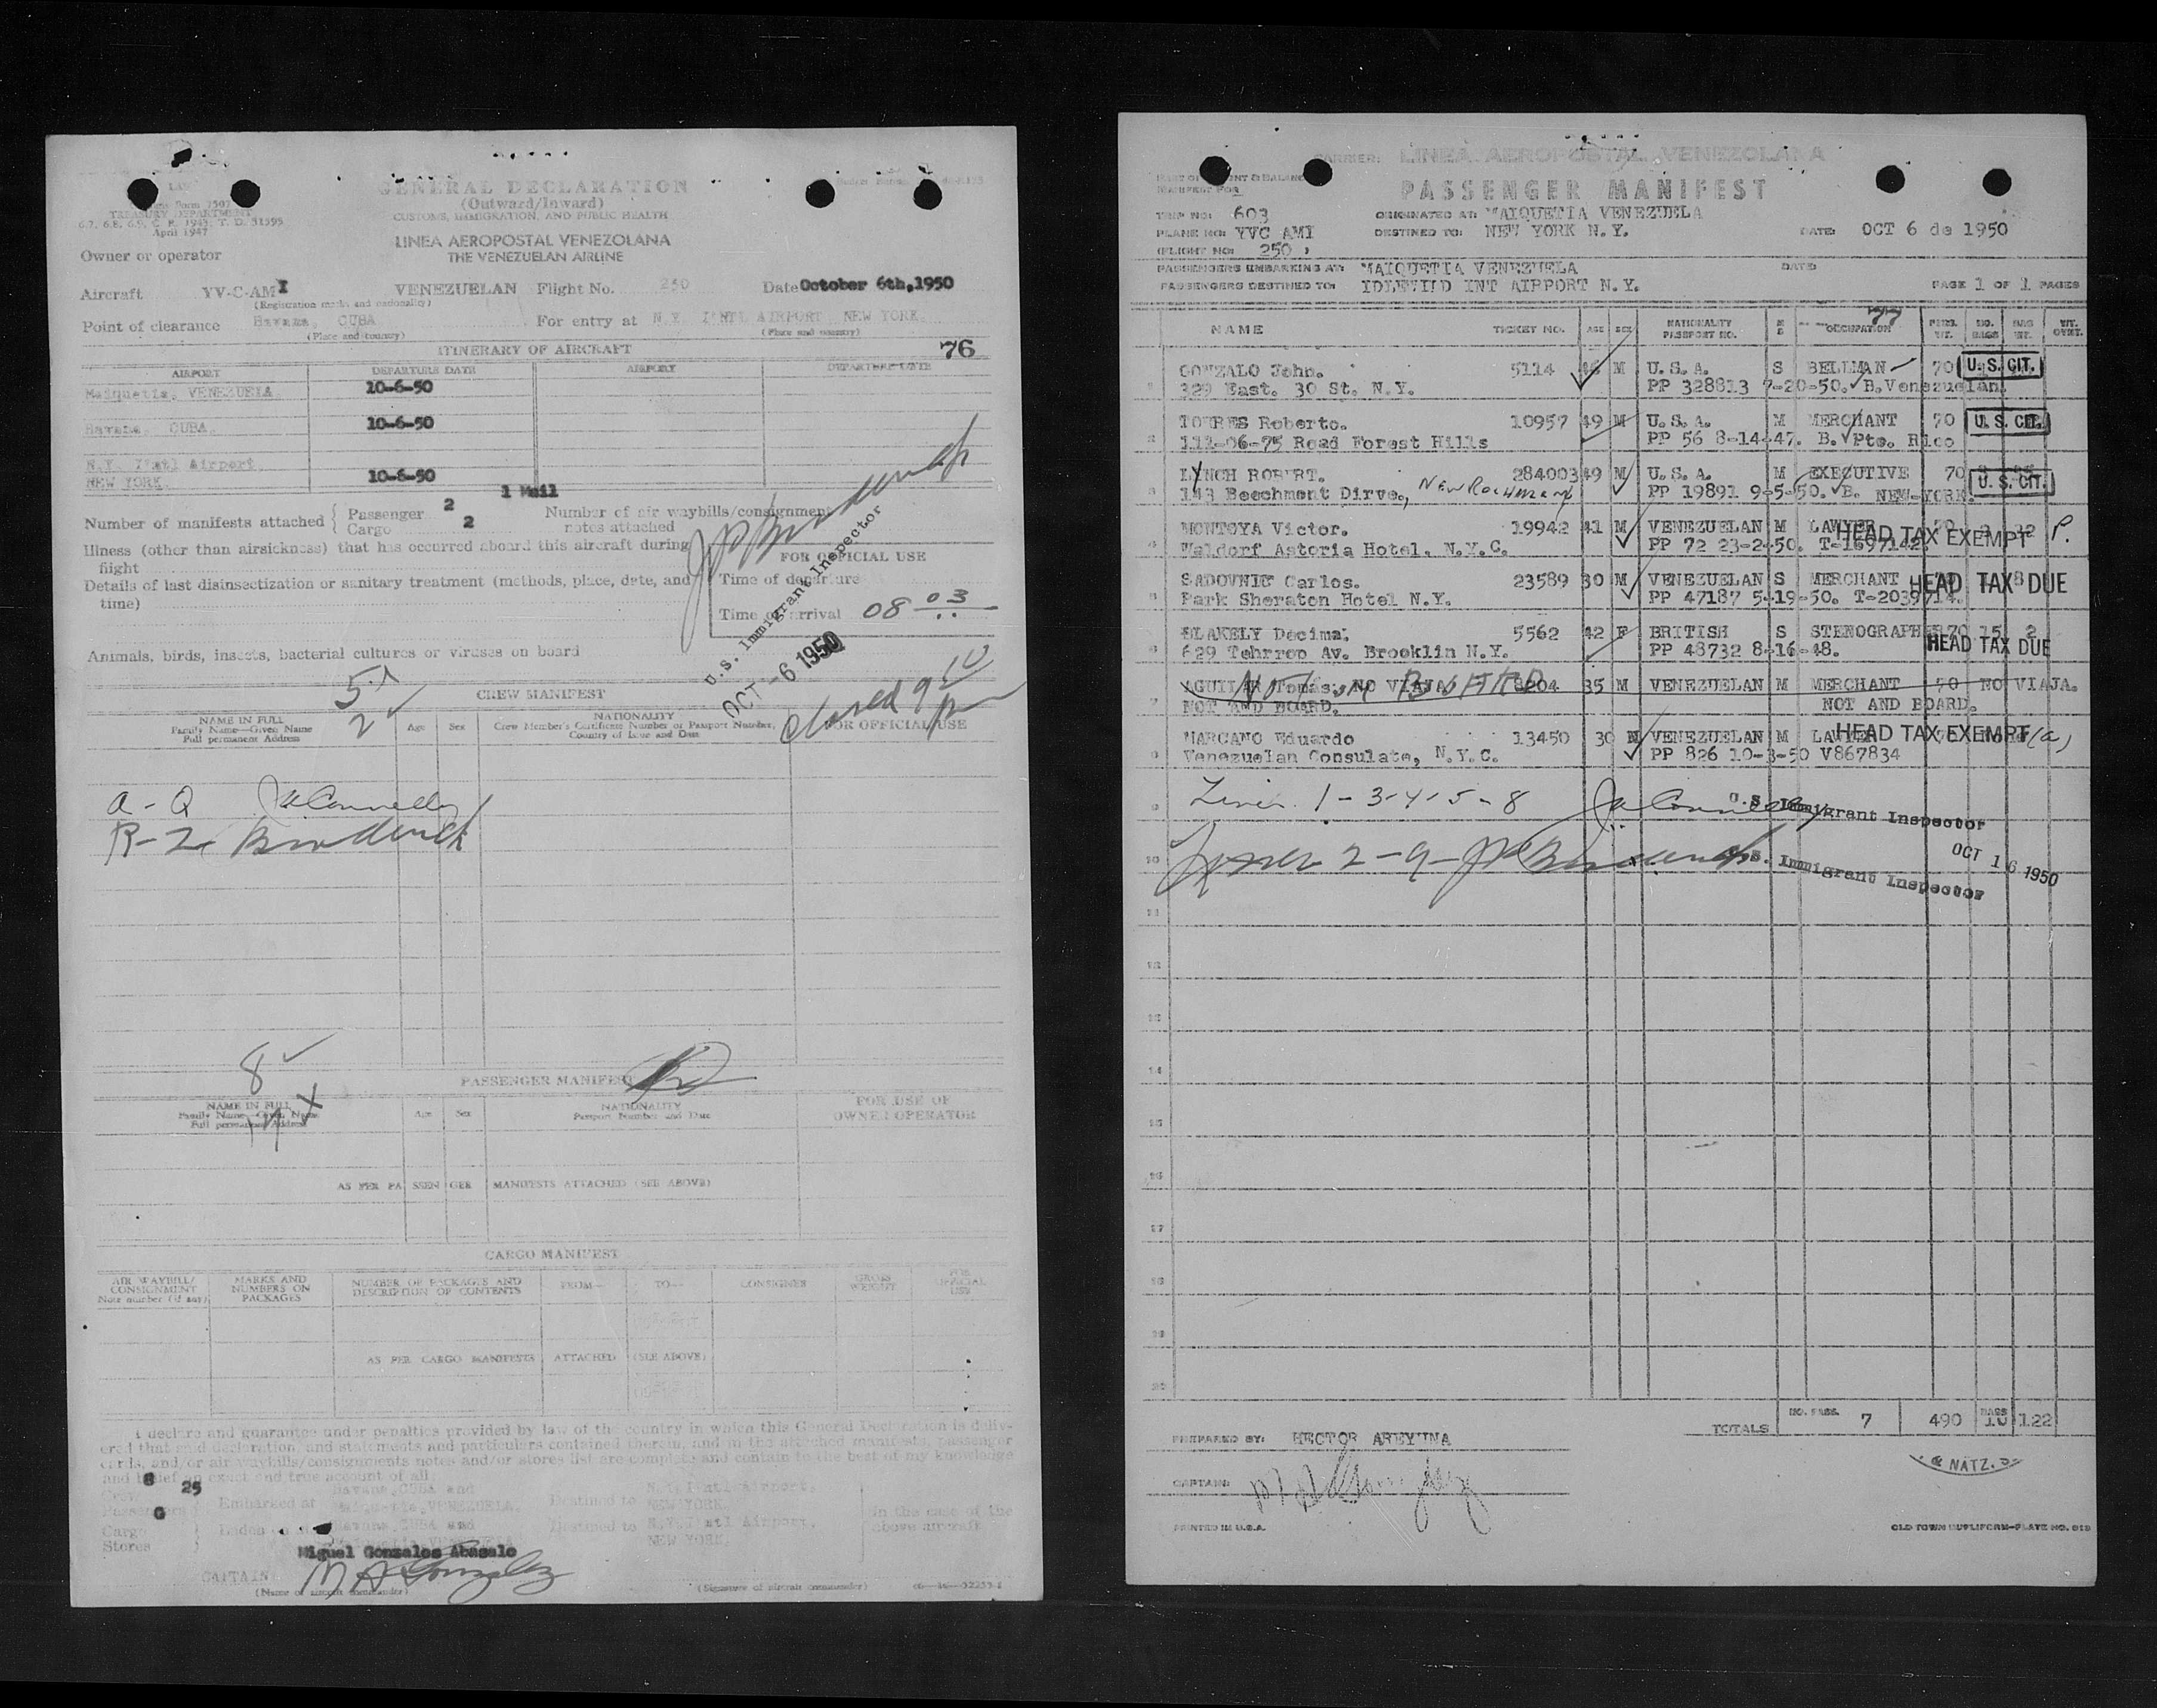 GENERAL DECLARATION
(Outward/Inward)
CUSTOMS, IMMIGRATION, AND PUBLIC HEALTH
TREASURY DEPARTMENT
6.7, 6.8, 6.9, C. R. 1943; T. D. 51595
April 1947
LINEA AEROPOSTAL VENEZOLANA
THE VENEZUELAN AIRLINE
Owner or operator
Aircraft YV-C-AMI VENEZUELAN Flight No. 250 Date October 6th,1950
(Registration marks and nationality)
Point of clearance Havana, CUBA For entry at N.Y. I'NTL AIRPORT NEW YORK
(Place and country) (Place and country)
ITINERARY OF AIRCRAFT 76
AIRPORT DEPARTURE DATE AIRPORT DEPARTURE DATE
Maiquetia, VENEZUELA 10-6-50
Havana, CUBA. 10-6-50
N.Y. I'ntl Airport
NEW YORK 10-6-50
1 Mail
Number of manifests attached { Passenger 2
Cargo 2
Number of air waybills/consignment
notes attached
Illness (other than airsickness) that has occurred aboard this aircraft during
flight
Details of last disinsectization or sanitary treatment (methods, place, date, and
time)
FOR OFFICIAL USE
Time of departure
Time of arrival 08 03
U.S. Immigrant Inspector
OCT - 6 1950
Animals, birds, insects, bacterial cultures or viruses on board
5
2
closed 9
CREW MANIFEST
NAME IN FULL
Family Name—Given Name
Full permanent Address
Age Sex
NATIONALITY
Crew Member's Certificate Number or Passport Number,
Country of Issue and Date
FOR OFFICIAL USE
a - Q JA Connelly
R-Z Broderick
8
PASSENGER MANIFEST
NAME IN FULL
Family Name—Given Name
Full permanent Address
Age Sex
NATIONALITY
Passport Number and Date
FOR USE OF
OWNER/OPERATOR
AS PER PASSENGER MANIFESTS ATTACHED (SEE ABOVE)
CARGO MANIFEST
AIR WAYBILL/
CONSIGNMENT
Note number (if any)
MARKS AND
NUMBERS ON
PACKAGES
NUMBER OF PACKAGES AND
DESCRIPTION OF CONTENTS
FROM— TO— CONSIGNEE
GROSS
WEIGHT
FOR
OFFICIAL
USE
AS PER CARGO MANIFESTS ATTACHED (SEE ABOVE)
I declare and guarantee under penalties provided by law of the country in which this General Declaration is deliv-
ered that said declaration and statements and particulars contained therein, and in the attached manifests, passenger
cards, and/or air waybills/consignments notes and/or stores list are complete and contain to the best of my knowledge
and belief an exact and true account of all
Crew 8 25
Passengers
Embarked at Havana, CUBA and
Maiquetia, VENEZUELA.
Destined to N.Y. I'ntl Airport,
NEW YORK.
Cargo
Stores
Laden Havana, CUBA and
Destined to N.Y. I'ntl Airport,
NEW YORK
in the case of the
above aircraft
Miguel Gonzalos Abasalo
CAPTAIN M A Gonzalez
(Name of aircraft commander) (Signature of aircraft commander)
CARRIER: LINEA AEROPOSTAL VENEZOLANA
PASSENGER MANIFEST
TRIP NO: 603 ORIGINATED AT: MAIQUETIA VENEZUELA
PLANE NO: YVC AMI DESTINED TO: NEW YORK N.Y. DATE: OCT 6 de 1950
(FLIGHT NO: 250)
PASSENGERS EMBARKING AT: MAIQUETIA VENEZUELA DATE
PASSENGERS DESTINED TO: IDLEWILD INT AIRPORT N.Y. PAGE 1 OF 1 PAGES
77
NAME TICKET NO. AGE SEX NATIONALITY PASSPORT NO. OCCUPATION
GONZALO John. 5114 46 M U.S.A. S BELLMAN 70 U.S. CIT.
329 East. 30 St. N.Y. PP 328813 7-20-50. B.Venezuelan.
TORRES Roberto. 10957 49 M U.S.A. M MERCHANT 70 U.S. CIT.
111-06-75 Road Forest Hills PP 56 8-14-47. B. Pto. Rico
LYNCH ROBERT. 284003 49 M U.S.A. M EXECUTIVE 70 U.S. CIT.
143 Beechmont Dirve., New Rochelle PP 19891 9-5-50. B. NEW-YORK.
MONTOYA Victor. 19942 41 M VENEZUELAN M LAWYER HEAD TAX EXEMPT P.
Waldorf Astoria Hotel. N.Y.C. PP 72 23-2-50. T-1697142.
SADOVNIC Carlos. 23589 30 M VENEZUELAN S MERCHANT HEAD TAX DUE
Park Sheraton Hotel N.Y. PP 47187 5-19-50. T-2039714.
BLAKELY Decima. 5562 42 F BRITISH S STENOGRAPHER 70 15 2
629 Tehrrop Av. Brooklin N.Y. PP 48732 8-16-48. HEAD TAX DUE
AGUILAR Tomas. NO VIAJA 8204 35 M VENEZUELAN M MERCHANT 70 NO VIAJA.
Not on Board
NOT AND BOARD. NOT AND BOARD.
MARCANO Eduardo 13450 30 M VENEZUELAN M LAWYER HEAD TAX EXEMPT (a)
Venezuelan Consulate, N.Y.C. PP 826 10-3-50 V867834
Lines 1-3-4-5-8 JA Connelly U.S. Immigrant Inspector
Lines 2-9- JP Broderick U.S. Immigrant Inspector
OCT 16 1950
TOTALS NO. PASS. 7 490 BAGS 10 122
PREPARED BY: HECTOR AREYUNA
& NATZ.
CAPTAIN: M A Gonzalez
PRINTED IN U.S.A. OLD TOWN DUPLIFORM-PLATE NO. 918